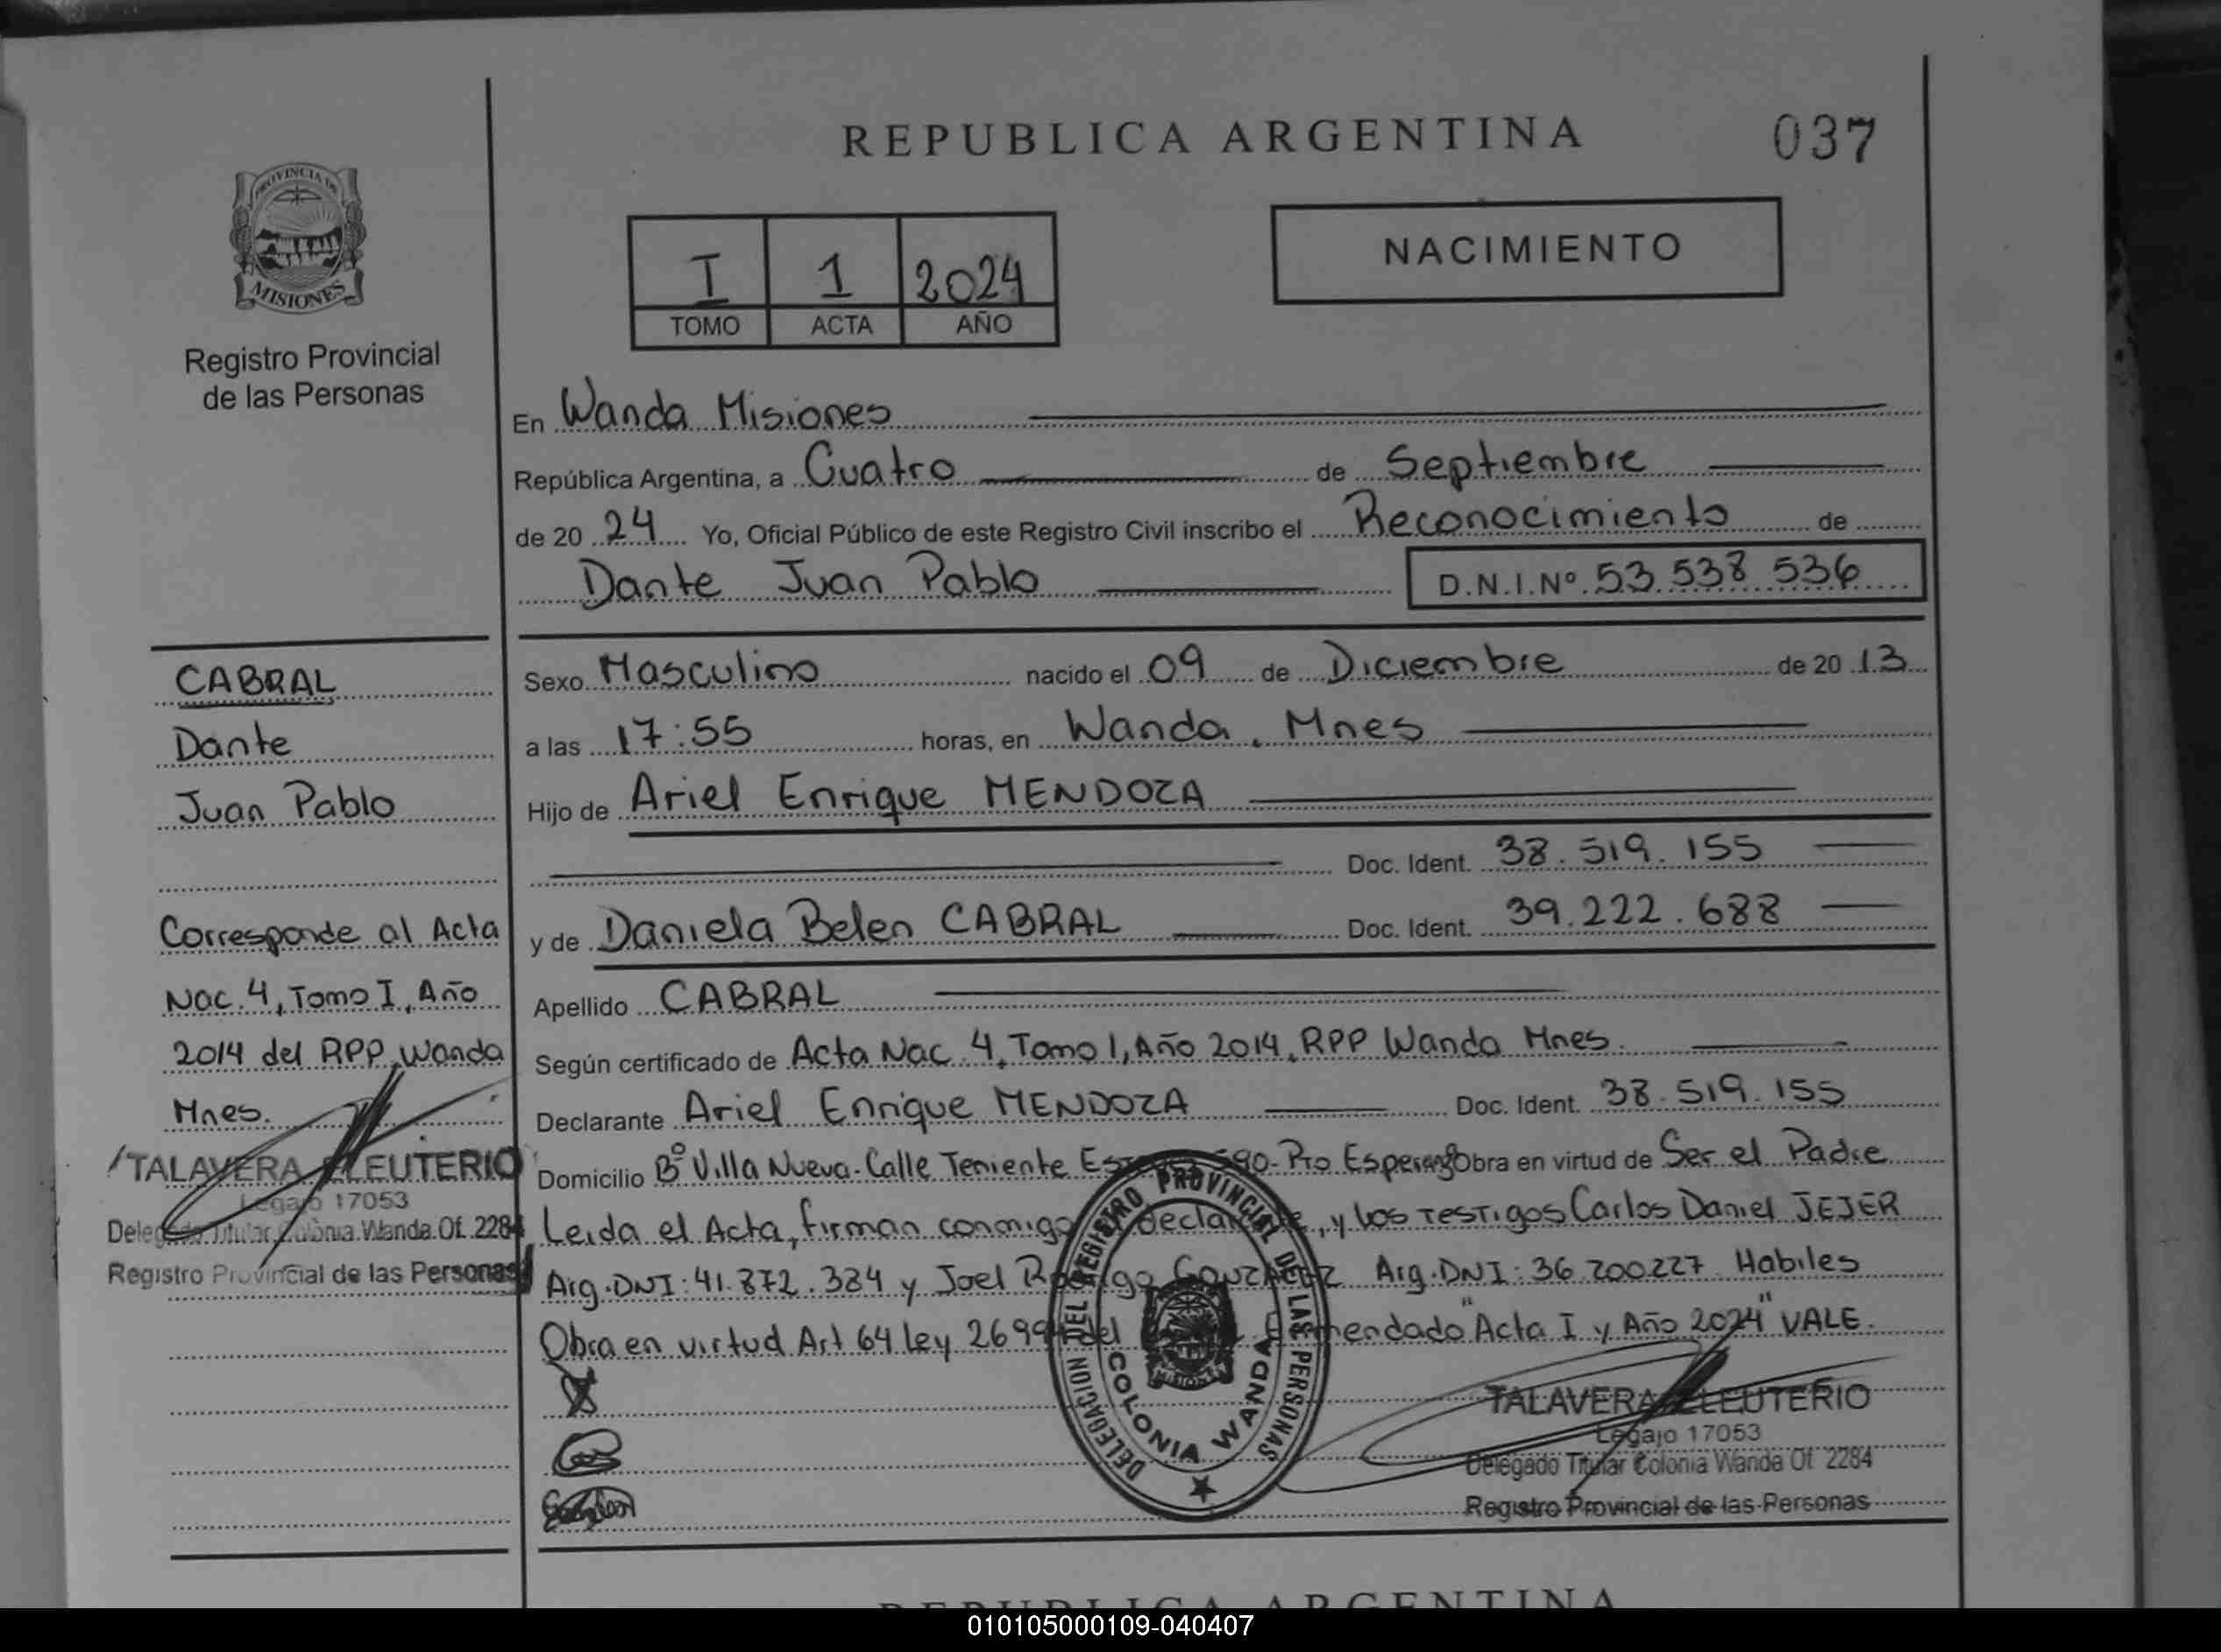 REPUBLICA ARGENTINA
037
PROVINCIA DE
MISIONES
Registro Provincial
de las Personas
I 1 2024
TOMO ACTA AÑO
NACIMIENTO
En Wanda Misiones
República Argentina, a Cuatro de Septiembre
de 20 24 Yo, Oficial Público de este Registro Civil inscribo el Reconocimiento de
Dante Juan Pablo D.N.I.Nº 53.538.536
CABRAL
Dante
Juan Pablo
Corresponde al Acta
Nac. 4, Tomo I, Año
2014 del RPP, Wanda
Mnes.
TALAVERA ELEUTERIO
Legajo 17053
Delegado Titular Colonia Wanda Of. 2284
Registro Provincial de las Personas
Sexo Masculino nacido el 09 de Diciembre de 20 13
a las 17:55 horas, en Wanda, Mnes
Hijo de Ariel Enrique MENDOZA
Doc. Ident. 38.519.155
y de Daniela Belen CABRAL Doc. Ident. 39.222.688
Apellido CABRAL
Según certificado de Acta Nac. 4, Tomo 1, Año 2014, RPP Wanda Mnes.
Declarante Ariel Enrique MENDOZA Doc. Ident. 38.519.155
Domicilio Bº Villa Nueva-Calle Teniente 590-Pto Esperanza Obra en virtud de Ser el Padre
Leida el Acta, firman conmigo declarante, y los Testigos Carlos Daniel JEJER
Arg.DNI: 41.872.384 y Joel Rodrigo GONZALEZ Arg.DNI: 36.200227 Habiles
Obra en virtud Art 64 Ley 26994 del Enmendado "Acta I y Año 2024" VALE.
DELEGACION DEL REGISTRO PROVINCIAL DE LAS PERSONAS
MISIONES
COLONIA WANDA
TALAVERA ELEUTERIO
Legajo 17053
Delegado Titular Colonia Wanda Of. 2284
Registro Provincial de las Personas
REPUBLICA ARGENTINA
010105000109-040407